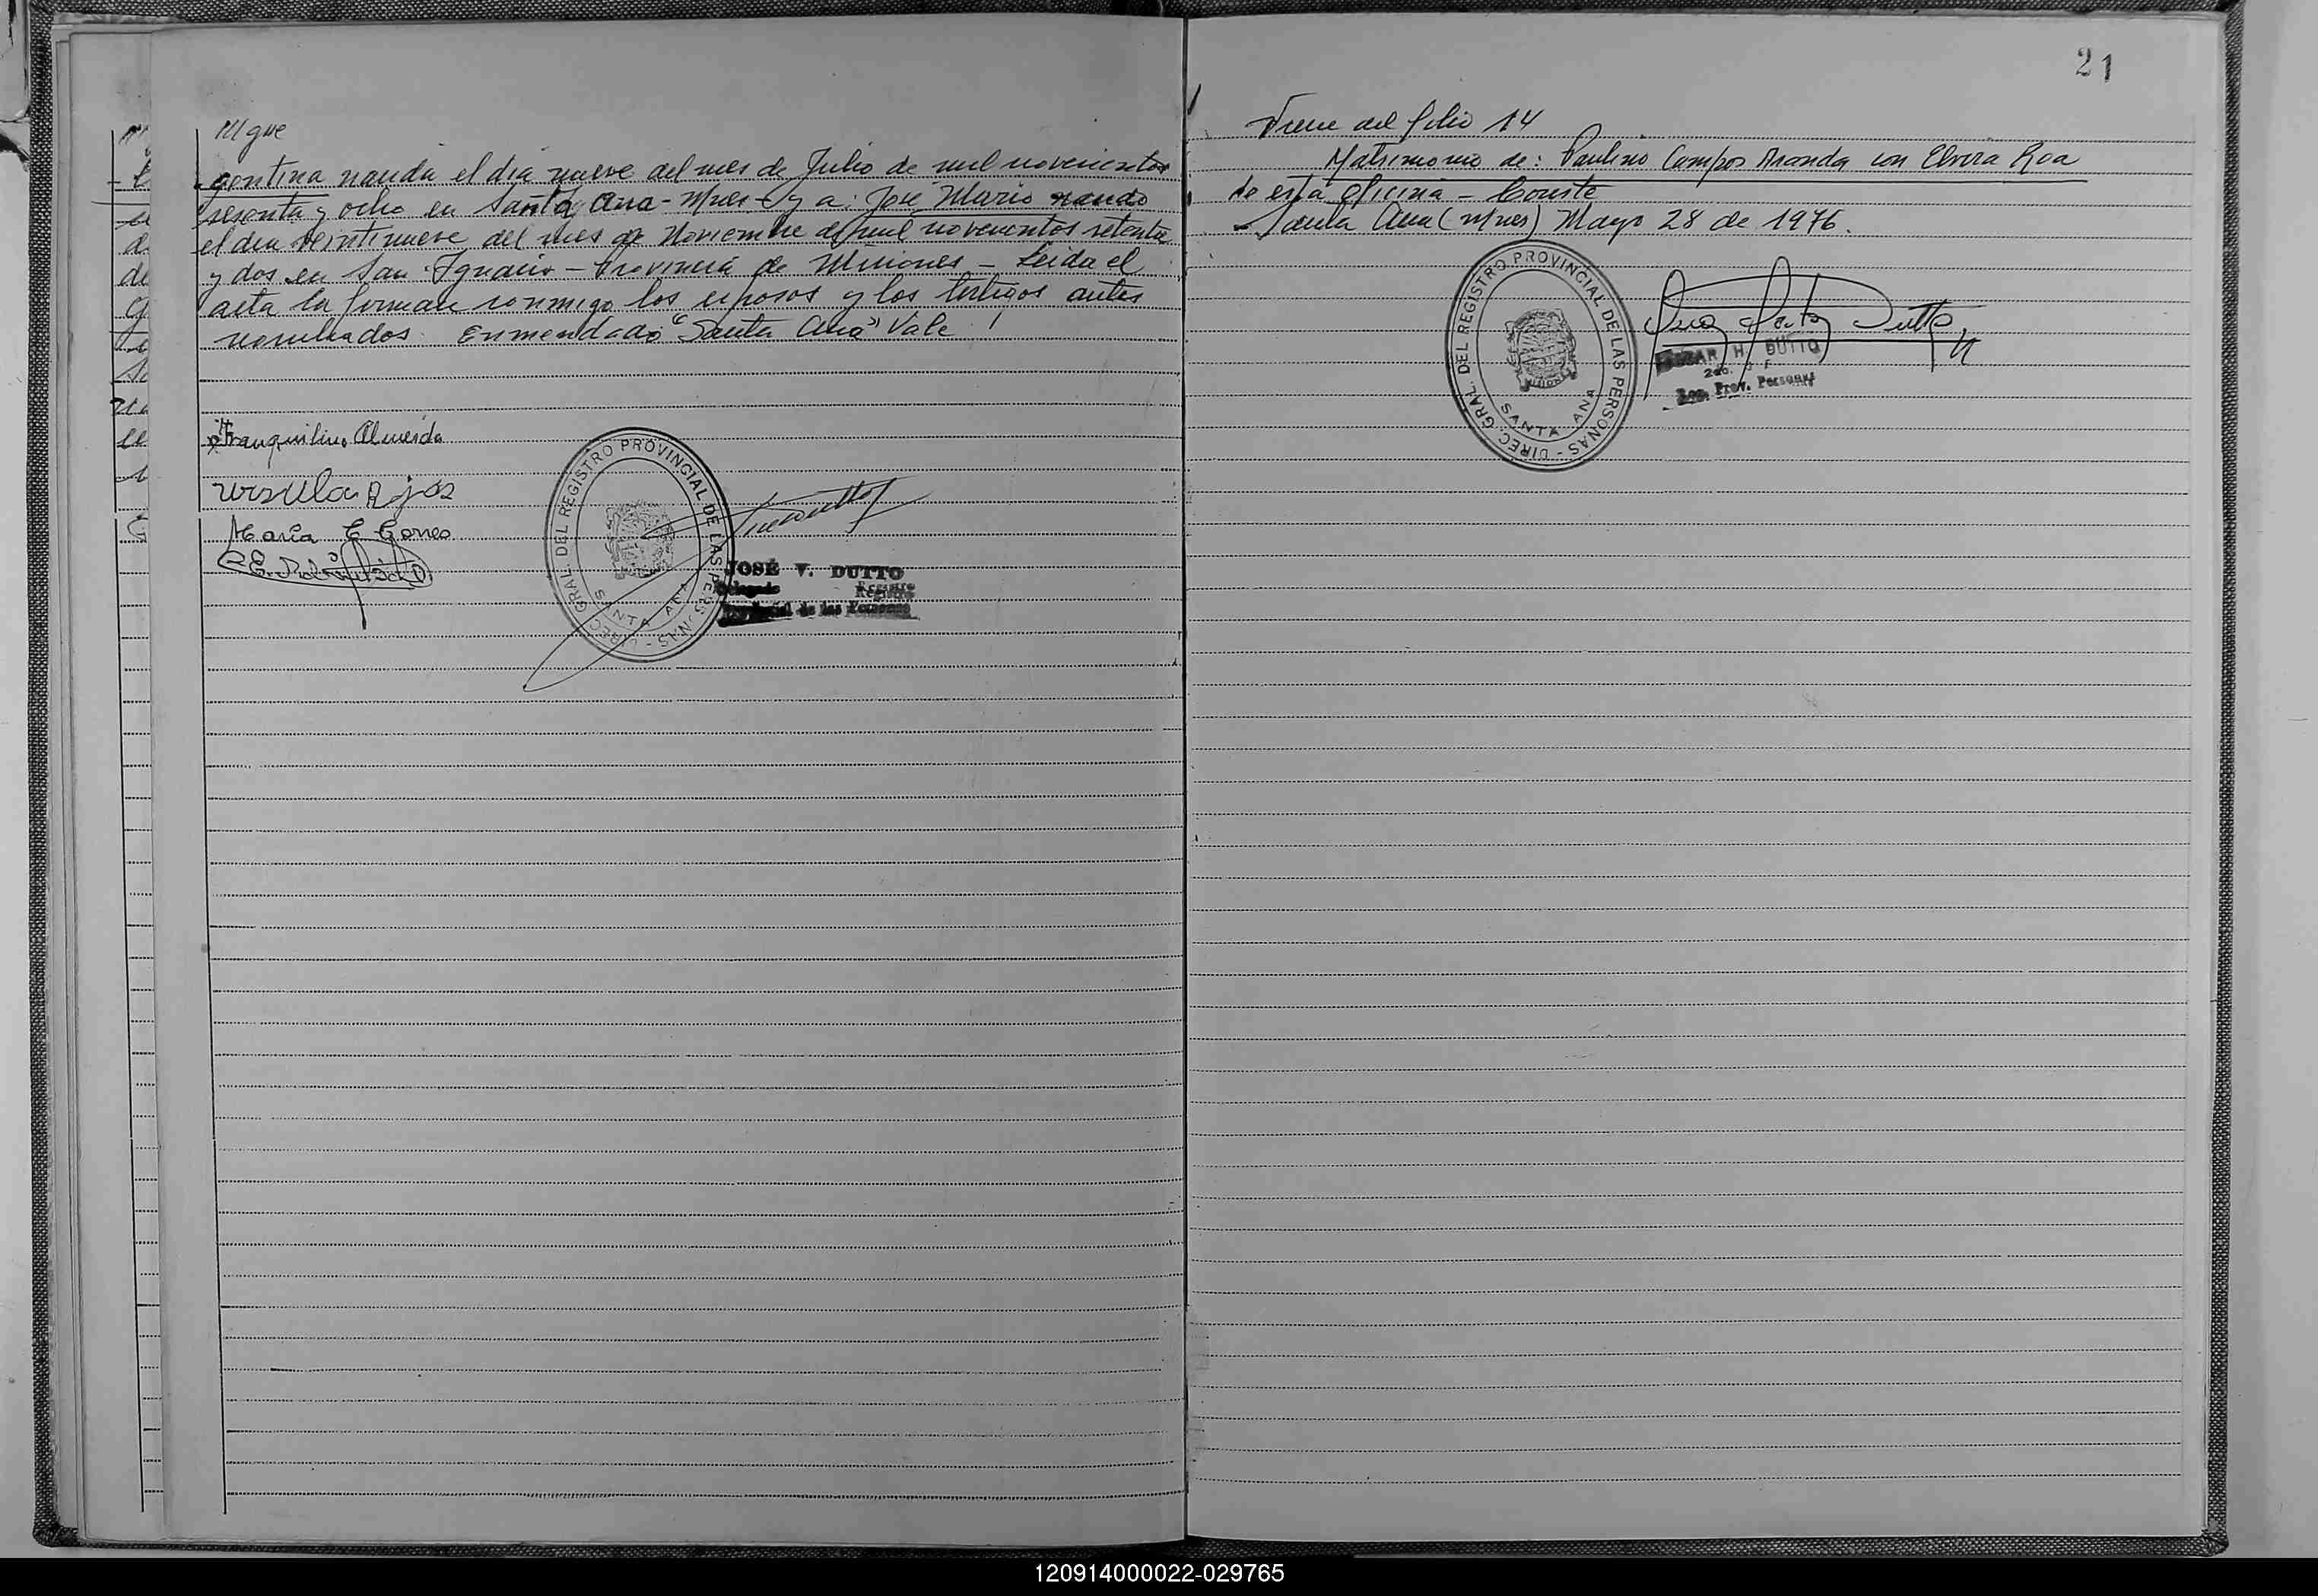 gentina nacida el dia nueve del mes de Julio de mil novecientos
sesenta y ocho en Santa Ana - Mnes - y a: José Mario nacido
el dia veintinueve del mes de Noviembre de mil novecientos setenta
y dos en San Ignacio - Provincia de Misiones - Leida el
acta la firman conmigo los esposos y los testigos antes
nombrados. Enmendado "Santa Ana" Vale
Tranquilino Almeida
Ursula Rojas
María E Gomes
DIREC. GRAL. DEL REGISTRO PROVINCIAL DE LAS PERSONAS -
SANTA ANA
JOSÉ V. DUTTO
Delegado Registro
Provincial de las Personas
21
Viene del folio 14
Matrimonio de: Paulino Campos Aranda con Elvira Roa
de esta oficina - Conste
Santa Ana (Mnes) Mayo 28 de 1976.
DIREC. GRAL. DEL REGISTRO PROVINCIAL DE LAS PERSONAS -
MISIONES
SANTA ANA
H. DUTTO
2do. J F
Reg. Prov. Personas
120914000022-029765